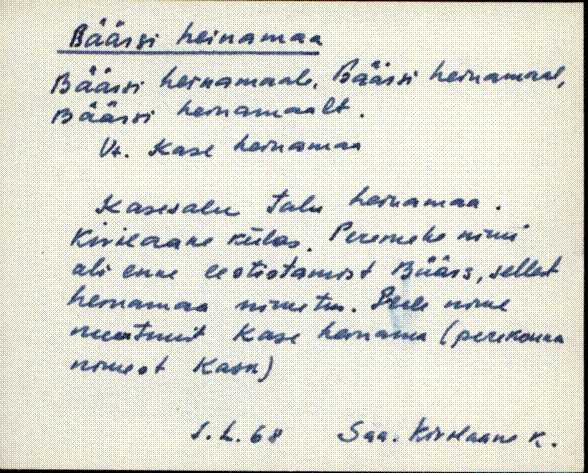 Bäärsi heinamaa
Bäärsi heinamaale, Bäärsi heinamaal,
Bäärsi heinamaalt.
Vt. Kase heinamaa
Kasesalu talu heinamaa.
Kirilaane külas. Peremehe nimi
oli enne eestistamist Bäärs, sellest
heinamaa nimetus. Peale nime
muutmist Kase heinamaa (perekonna
nimest Kask)
S. L. 68 Saa. Kirilaane k.